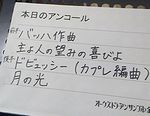 本日のアンコール
バッハ作曲
主よ人の望みの喜びよ
ドビュッシー(カプレ編曲)
月の光
オーケストラアンサンブル金